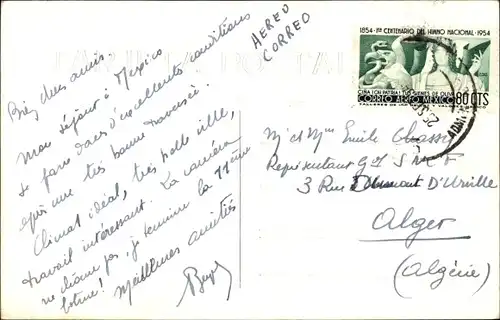 AEREO
CORREO
Bien chers amis.
Mon séjour à Mexico
se passe dans d'excellentes conditions
après une très bonne traversée.
Climat idéal, très belle ville,
travail intéressant. La caméra
ne chôme pas, je termine la 11ème
bobine!
Meilleures amitiés
1854 - 1er CENTENARIO DEL HIMNO NACIONAL - 1954
CIÑA ¡OH PATRIA! TUS SIENES DE OLIVA
CORREO AEREO MEXICO 80 CTS
M. et Mme Emile Chasso
Représentant Gal S M F
3 Rue Dumont D'Urville
Alger
(Algérie)